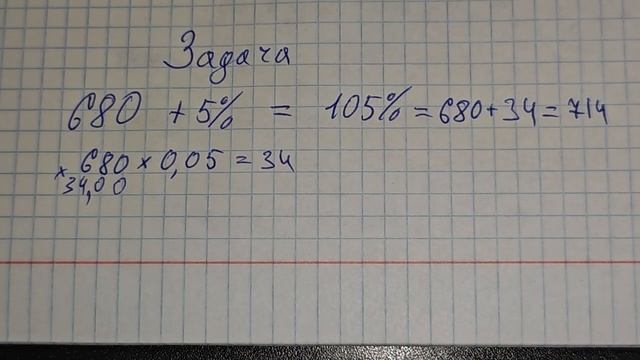 Задача
680 + 5% = 105% = 680 + 34 = 714
× 680 × 0,05 = 34
34,00